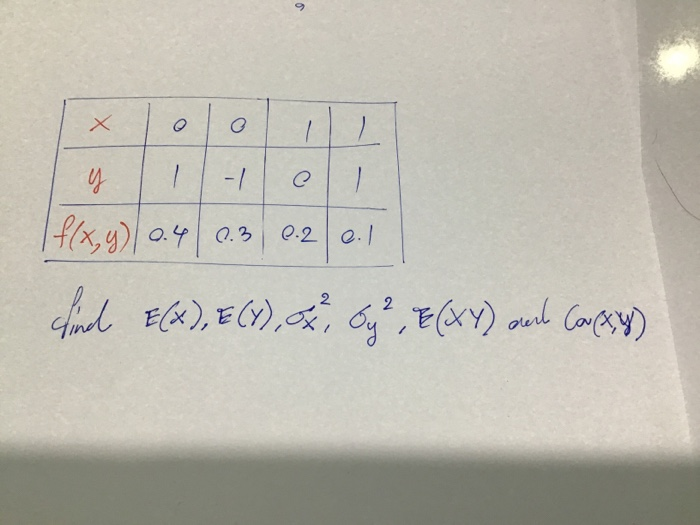 x 0 0 1 1
y 1 -1 0 1
f(x,y) 0.4 0.3 0.2 0.1
find E(X), E(Y), σx², σy², E(XY) and Cov(X,Y)